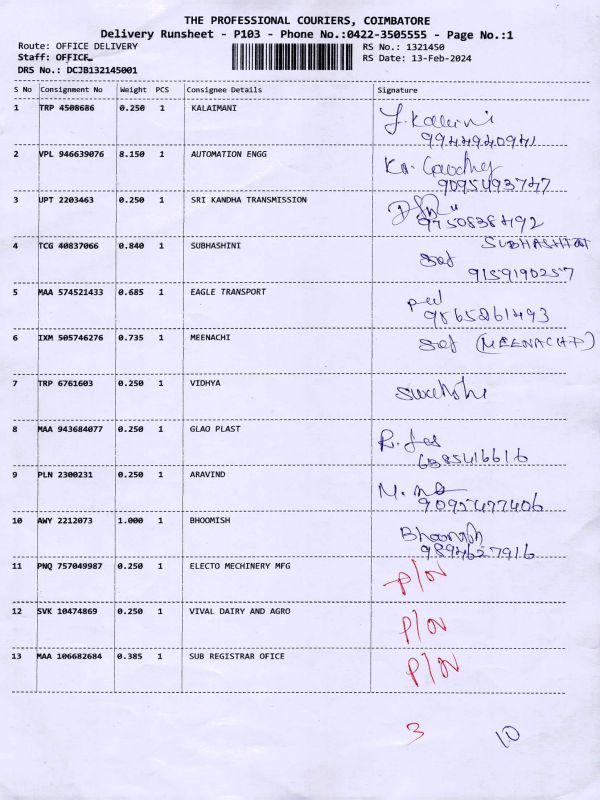 THE PROFESSIONAL COURIERS, COIMBATORE
Delivery Runsheet - P103 - Phone No.:0422-3505555 - Page No.:1
Route: OFFICE DELIVERY RS No.: 1321450
Staff: OFFICE RS Date: 13-Feb-2024
DRS No.: DCJB132145001
S No Consignment No Weight PCS Consignee Details Signature
1 TRP 4508686 0.250 1 KALAIMANI
9944940941
2 VPL 946639076 8.150 1 AUTOMATION ENGG
9095493747
3 UPT 2203463 0.250 1 SRI KANDHA TRANSMISSION
9750838492
4 TCG 40837066 0.840 1 SUBHASHINI SUBHASHINI
Self
9159190257
5 MAA 574521433 0.685 1 EAGLE TRANSPORT
9865261493
6 IXM 505746276 0.735 1 MEENACHI Self (MEENACHI)
7 TRP 6761603 0.250 1 VIDHYA
8 MAA 943684077 0.250 1 GLAO PLAST
6385416616
9 PLN 2300231 0.250 1 ARAVIND
9095477406
10 AWY 2212073 1.000 1 BHOOMISH
9894627916
11 PNQ 757049987 0.250 1 ELECTO MECHINERY MFG P/N
12 SVK 10474869 0.250 1 VIVAL DAIRY AND AGRO P/N
13 MAA 106682684 0.385 1 SUB REGISTRAR OFICE P/N
3 10